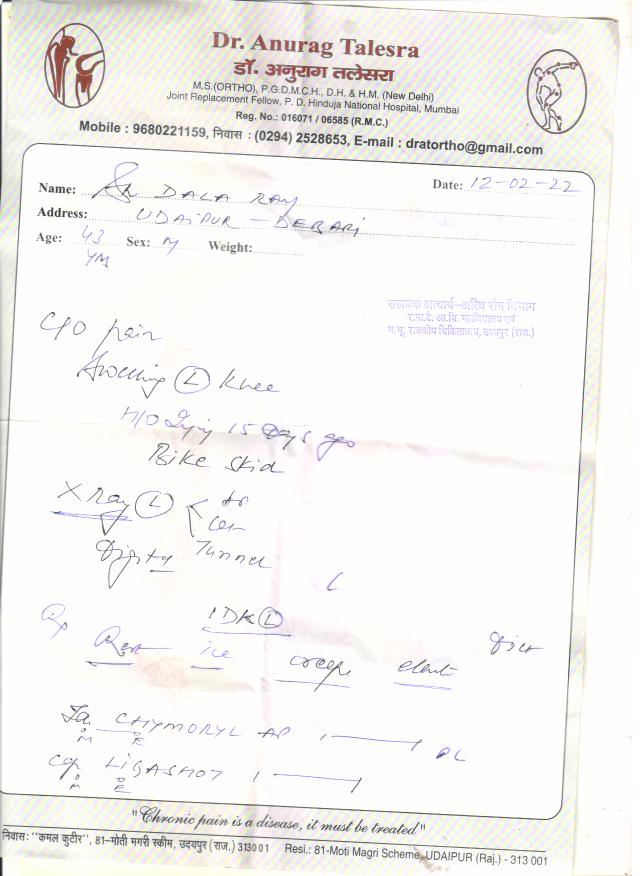 Dr. Anurag Talesra
डॉ. अनुराग तलेसरा
M.S.(ORTHO), P.G.D.M.C.H., D.H. & H.M. (New Delhi)
Joint Replacement Fellow, P. D. Hinduja National Hospital, Mumbai
Reg. No.: 016071 / 06585 (R.M.C.)
Mobile : 9680221159, निवास : (0294) 2528653, E-mail : dratortho@gmail.com
Name: DALA RAM
Date: 12-02-22
Address: UDAIPUR - DEBARI
Age: 43 Sex: M Weight:
YM
सहायक आचार्य-अस्थि रोग विभाग
र.ना.टे. आ.वि. महाविद्यालय एवं
म.भू. राजकीय चिकित्सालय, उदयपुर (राज.)
C/O pain
Swelling (L) Knee
H/O Injury 15 Days ago
Bike skid
X Ray (L)
Digital Tunnel
IDK (L)
Rx Rest ice crepe
CHYMORYL AP 1
M E
Cap LIGASHOT 1
M E
"Chronic pain is a disease, it must be treated"
निवास: "कमल कुटीर", 81-मोती मगरी स्कीम, उदयपुर (राज.) 313001 Resi.: 81-Moti Magri Scheme, UDAIPUR (Raj.) - 313 001